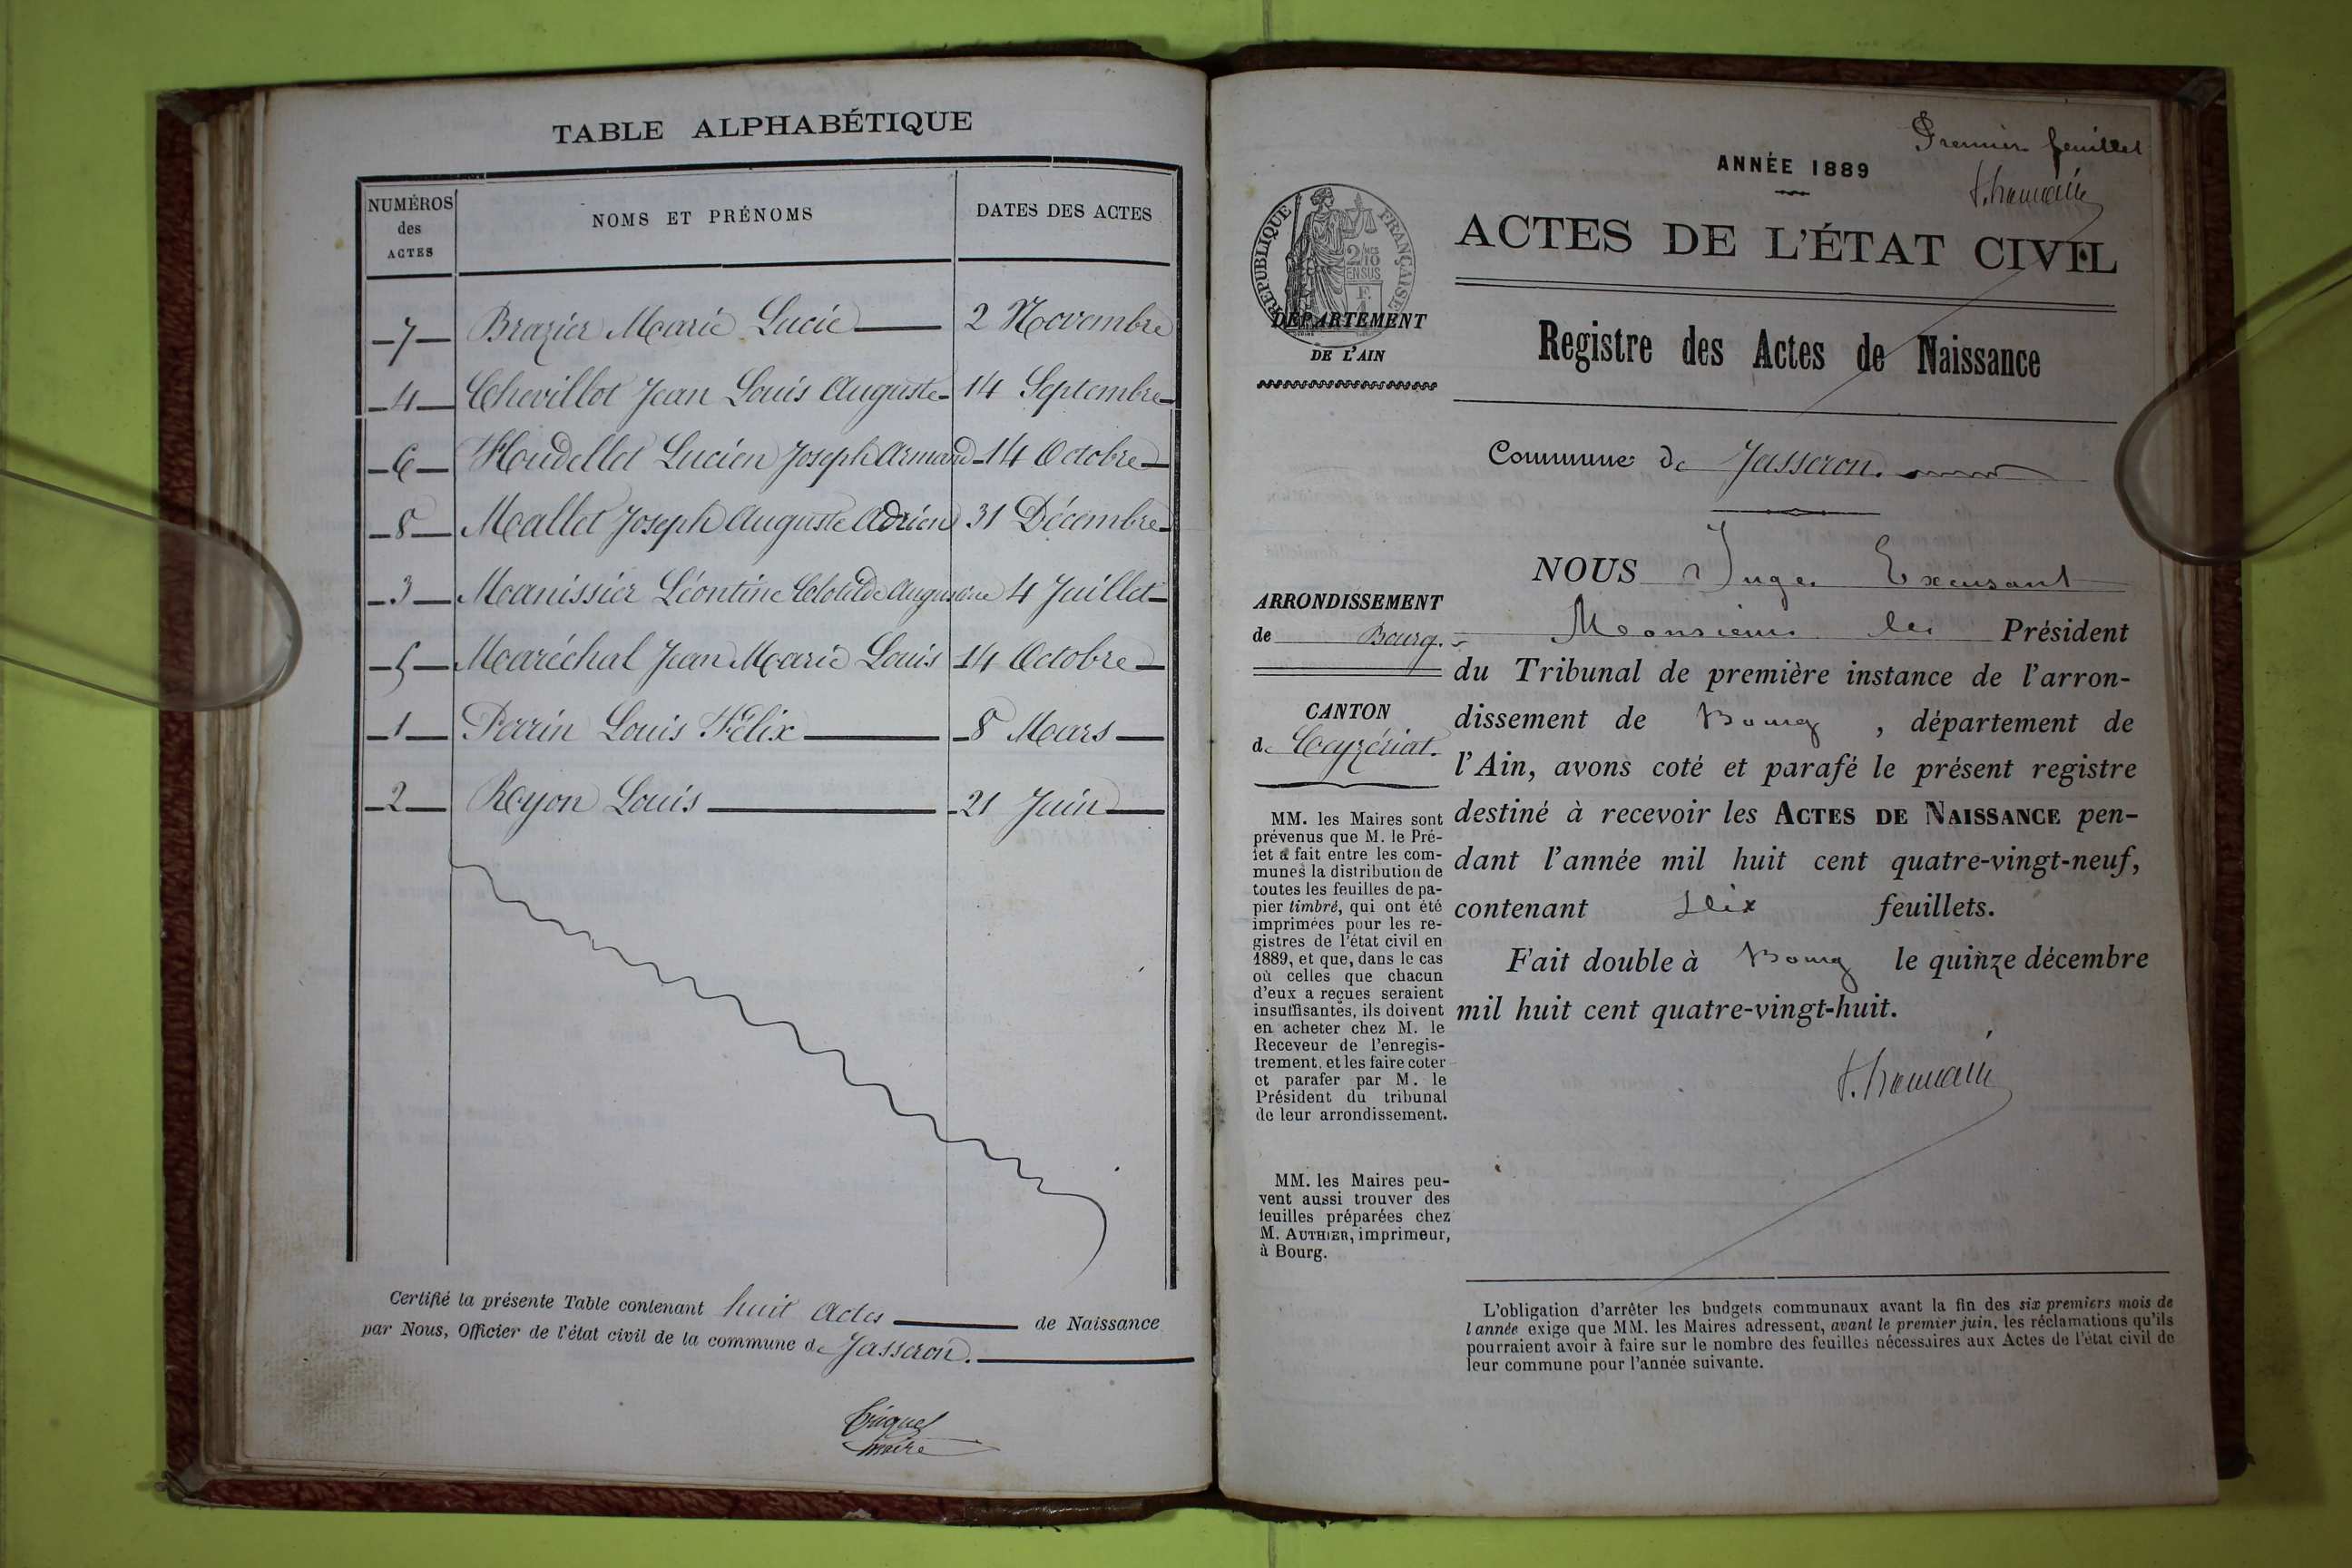 TABLE ALPHABÉTIQUE
NUMÉROS des ACTES
NOMS ET PRÉNOMS
DATES DES ACTES
7 Brazier Marie Lucie 2 Novembre
4 Chevillot Jean Louis Auguste 14 Septembre
6 Houdellet Lucien Joseph Armand 14 Octobre
8 Mallet Joseph Auguste Adrien 31 Décembre
3 Manissier Léontine Clotilde Augustine 4 Juillet
5 Maréchal Jean Marie Louis 14 Octobre
1 Perrin Louis Félix 8 Mars
2 Royon Louis 21 Juin
Certifié la présente Table contenant huit Actes de Naissance
par Nous, Officier de l'état civil de la commune de Jasseron.
maire
Premier feuillet
ANNÉE 1889
ACTES DE L'ÉTAT CIVIL
Registre des Actes de Naissance
Commune de Jasseron.
RÉPUBLIQUE FRANÇAISE
DÉPARTEMENT
DE L'AIN
ARRONDISSEMENT
de Bourg.
CANTON
de Ceyzériat.
MM. les Maires sont
prévenus que M. le Pré-
fet a fait entre les com-
munes la distribution de
toutes les feuilles de pa-
pier timbré, qui ont été
imprimées pour les re-
gistres de l'état civil en
1889, et que, dans le cas
où celles que chacun
d'eux a reçues seraient
insuffisantes, ils doivent
en acheter chez M. le
Receveur de l'enregis-
trement, et les faire coter
et parafer par M. le
Président du tribunal
de leur arrondissement.
MM. les Maires peu-
vent aussi trouver des
feuilles préparées chez
M. AUTHIER, imprimeur,
à Bourg.
NOUS Juge Excusant
Monsieur le Président
du Tribunal de première instance de l'arron-
dissement de Bourg, département de
l'Ain, avons coté et parafé le présent registre
destiné à recevoir les ACTES DE NAISSANCE pen-
dant l'année mil huit cent quatre-vingt-neuf,
contenant feuillets.
Fait double à Bourg le quinze décembre
mil huit cent quatre-vingt-huit.
L'obligation d'arrêter les budgets communaux avant la fin des six premiers mois de
l'année exige que MM. les Maires adressent, avant le premier juin, les réclamations qu'ils
pourraient avoir à faire sur le nombre des feuilles nécessaires aux Actes de l'état civil de
leur commune pour l'année suivante.